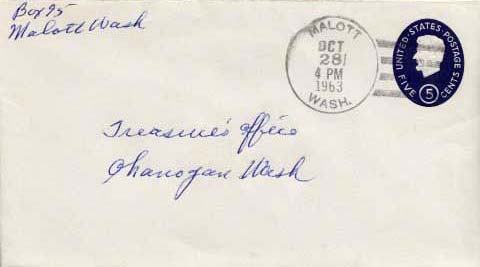 Box 95
Malott Wash
MALOTT
OCT
28
4 PM
1963
WASH.
UNITED·STATES·POSTAGE
FIVE 5 CENTS
Treasure's Office
Okanogan Wash